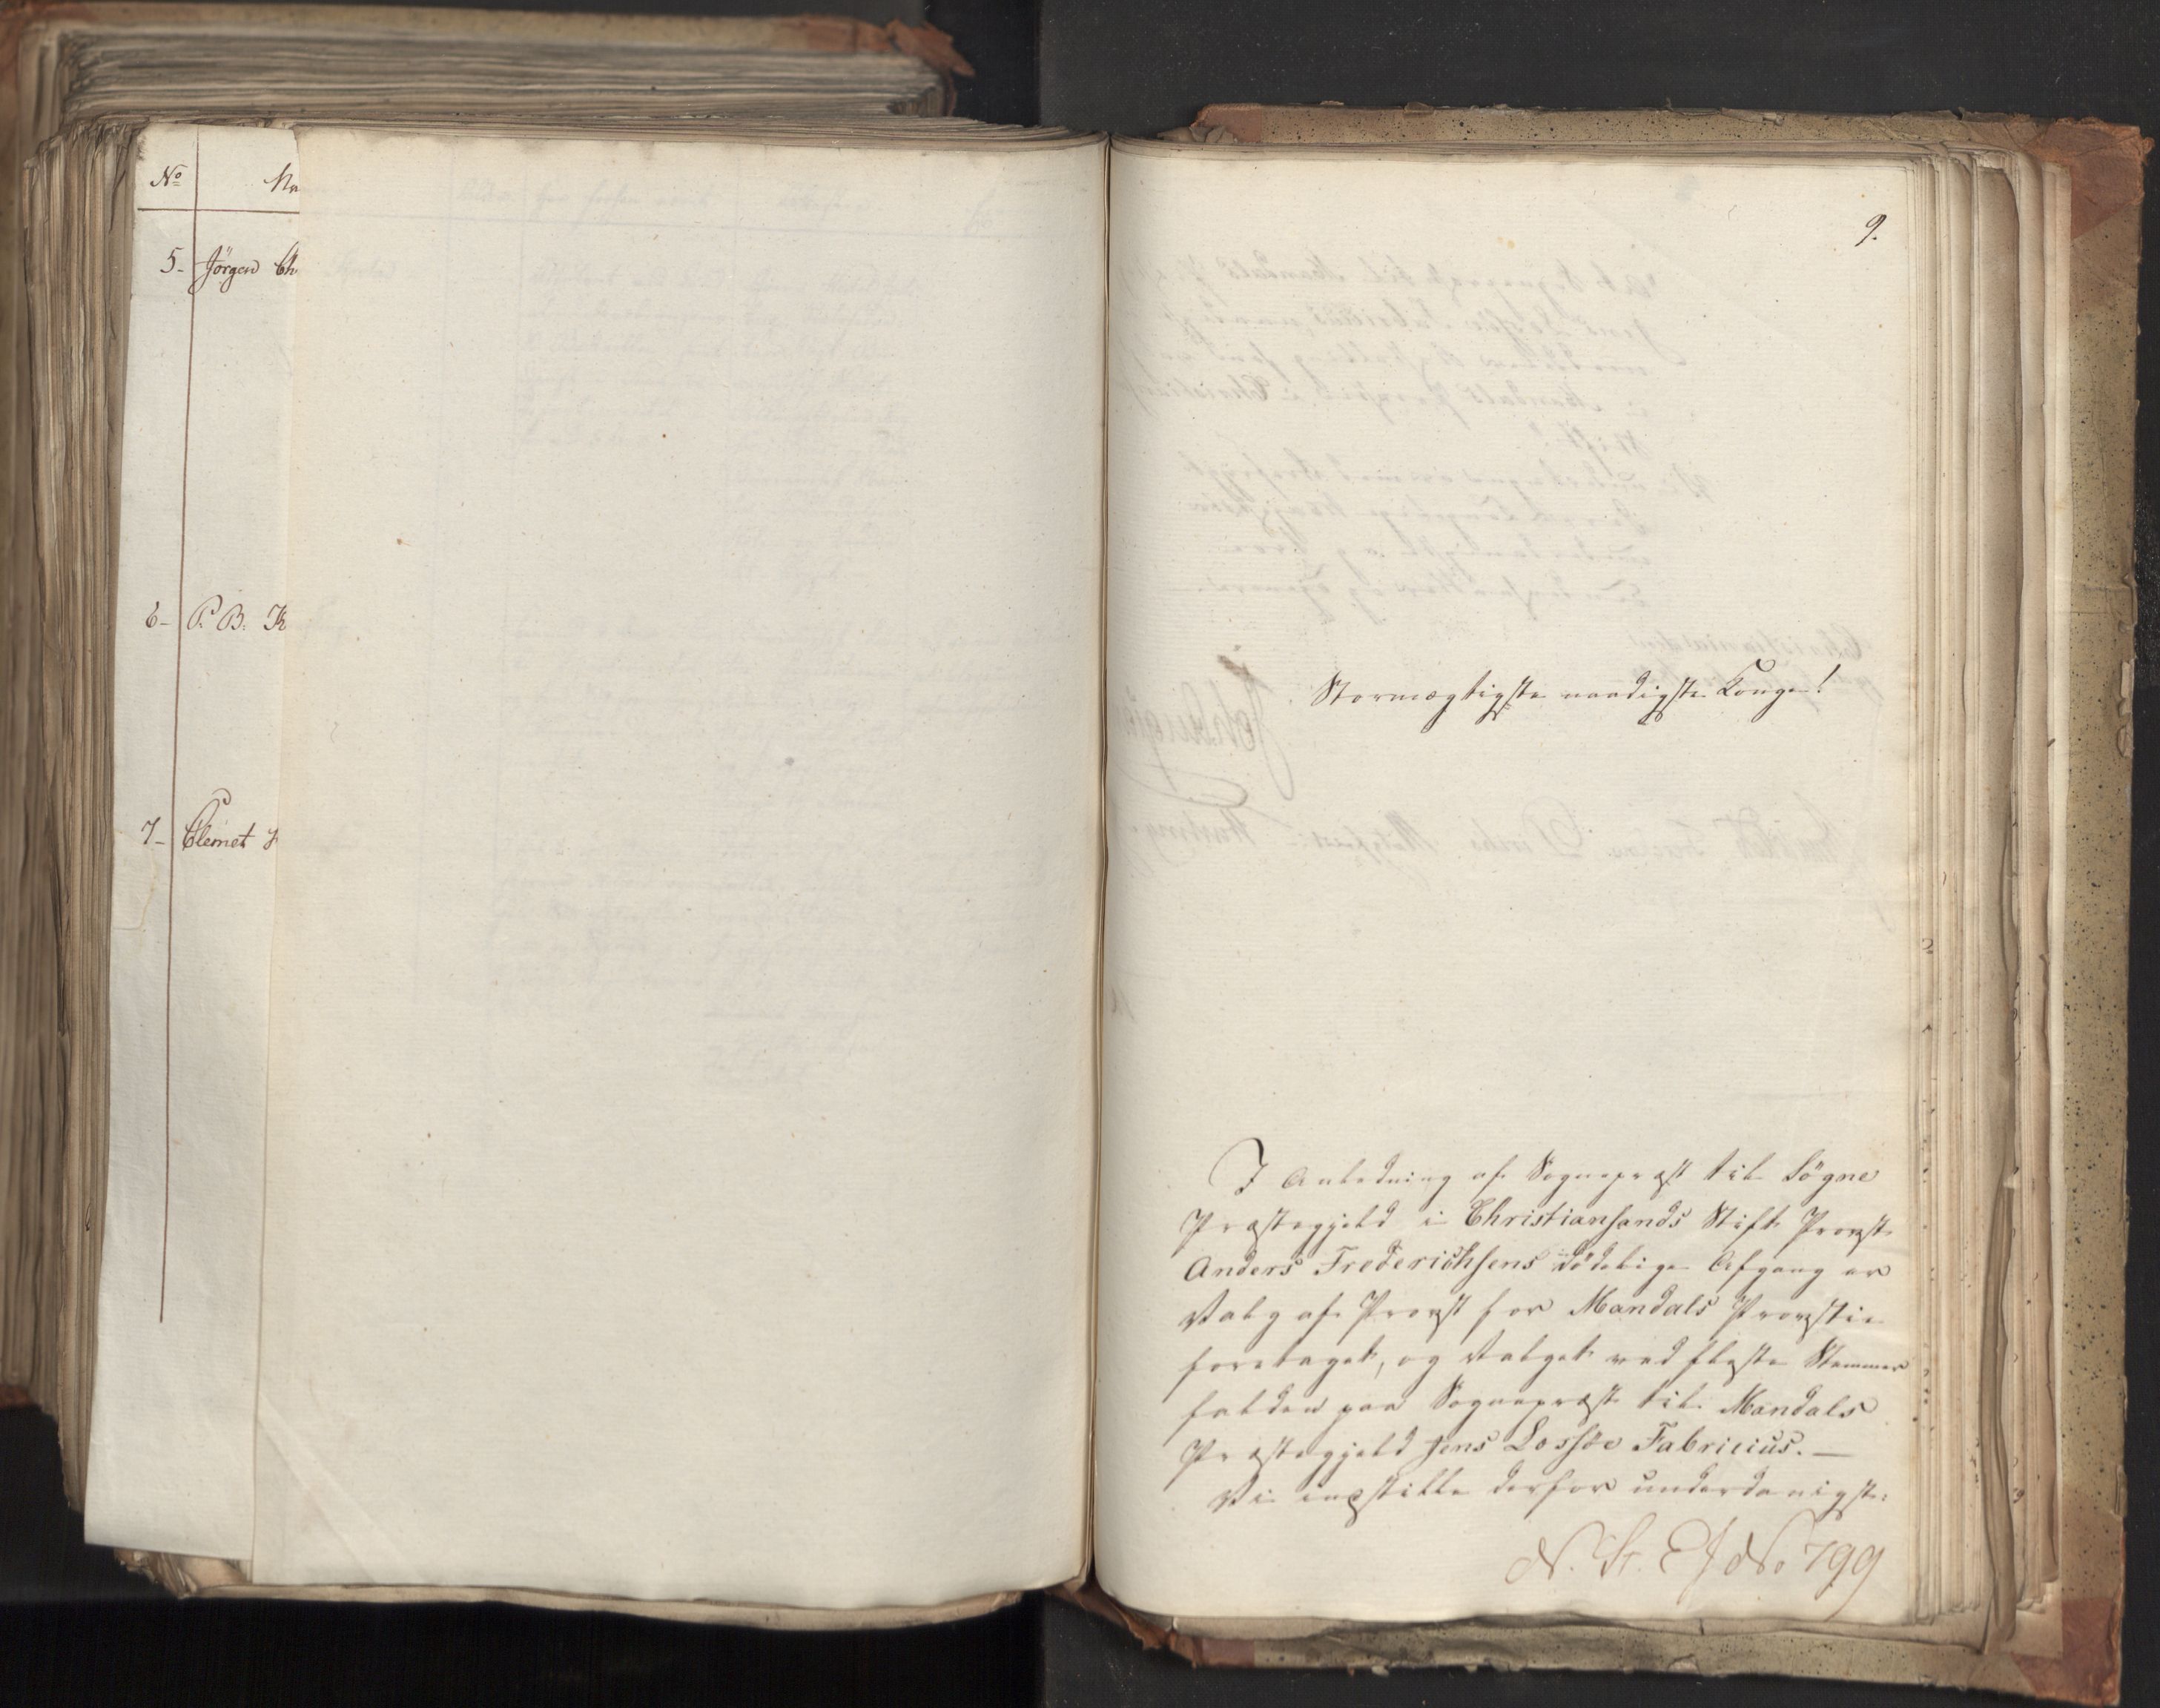 No
5- Jörgen Ch
6- P. B. K
7- Clemet
9.
Stormægtigste naadigste Konge!
I Anledning af Sognepræst til Sögne
Præstegjeld i Christiansands Stift Provst
Anders Frederichsens dödelige Afgang er
Valg af Provst for Mandals Provstie
foretaget, og Valget ved fleste Stemmer
falden paa Sognepræst til Mandals
Præstegjeld Jens Lossöe Fabricius. —
Vi indstille derfor underdanigst:
N. St. E J No 799